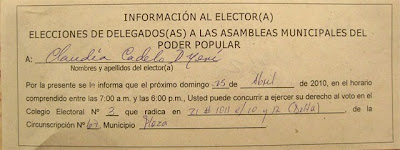 INFORMACIÓN AL ELECTOR(A)
ELECCIONES DE DELEGADOS(AS) A LAS ASAMBLEAS MUNICIPALES DEL
PODER POPULAR
A: Claudia Cadelo
Nombres y apellidos del elector(a)
Por la presente se le informa que el próximo domingo 25 de Abril de 2010, en el horario
comprendido entre las 7:00 a.m. y las 6:00 p.m., Usted puede concurrir a ejercer su derecho al voto en el
Colegio Electoral Nº 3 que radica en 21 # 1011 e/ 10 y 12 de la
Circunscripción Nº 67, Municipio Plaza